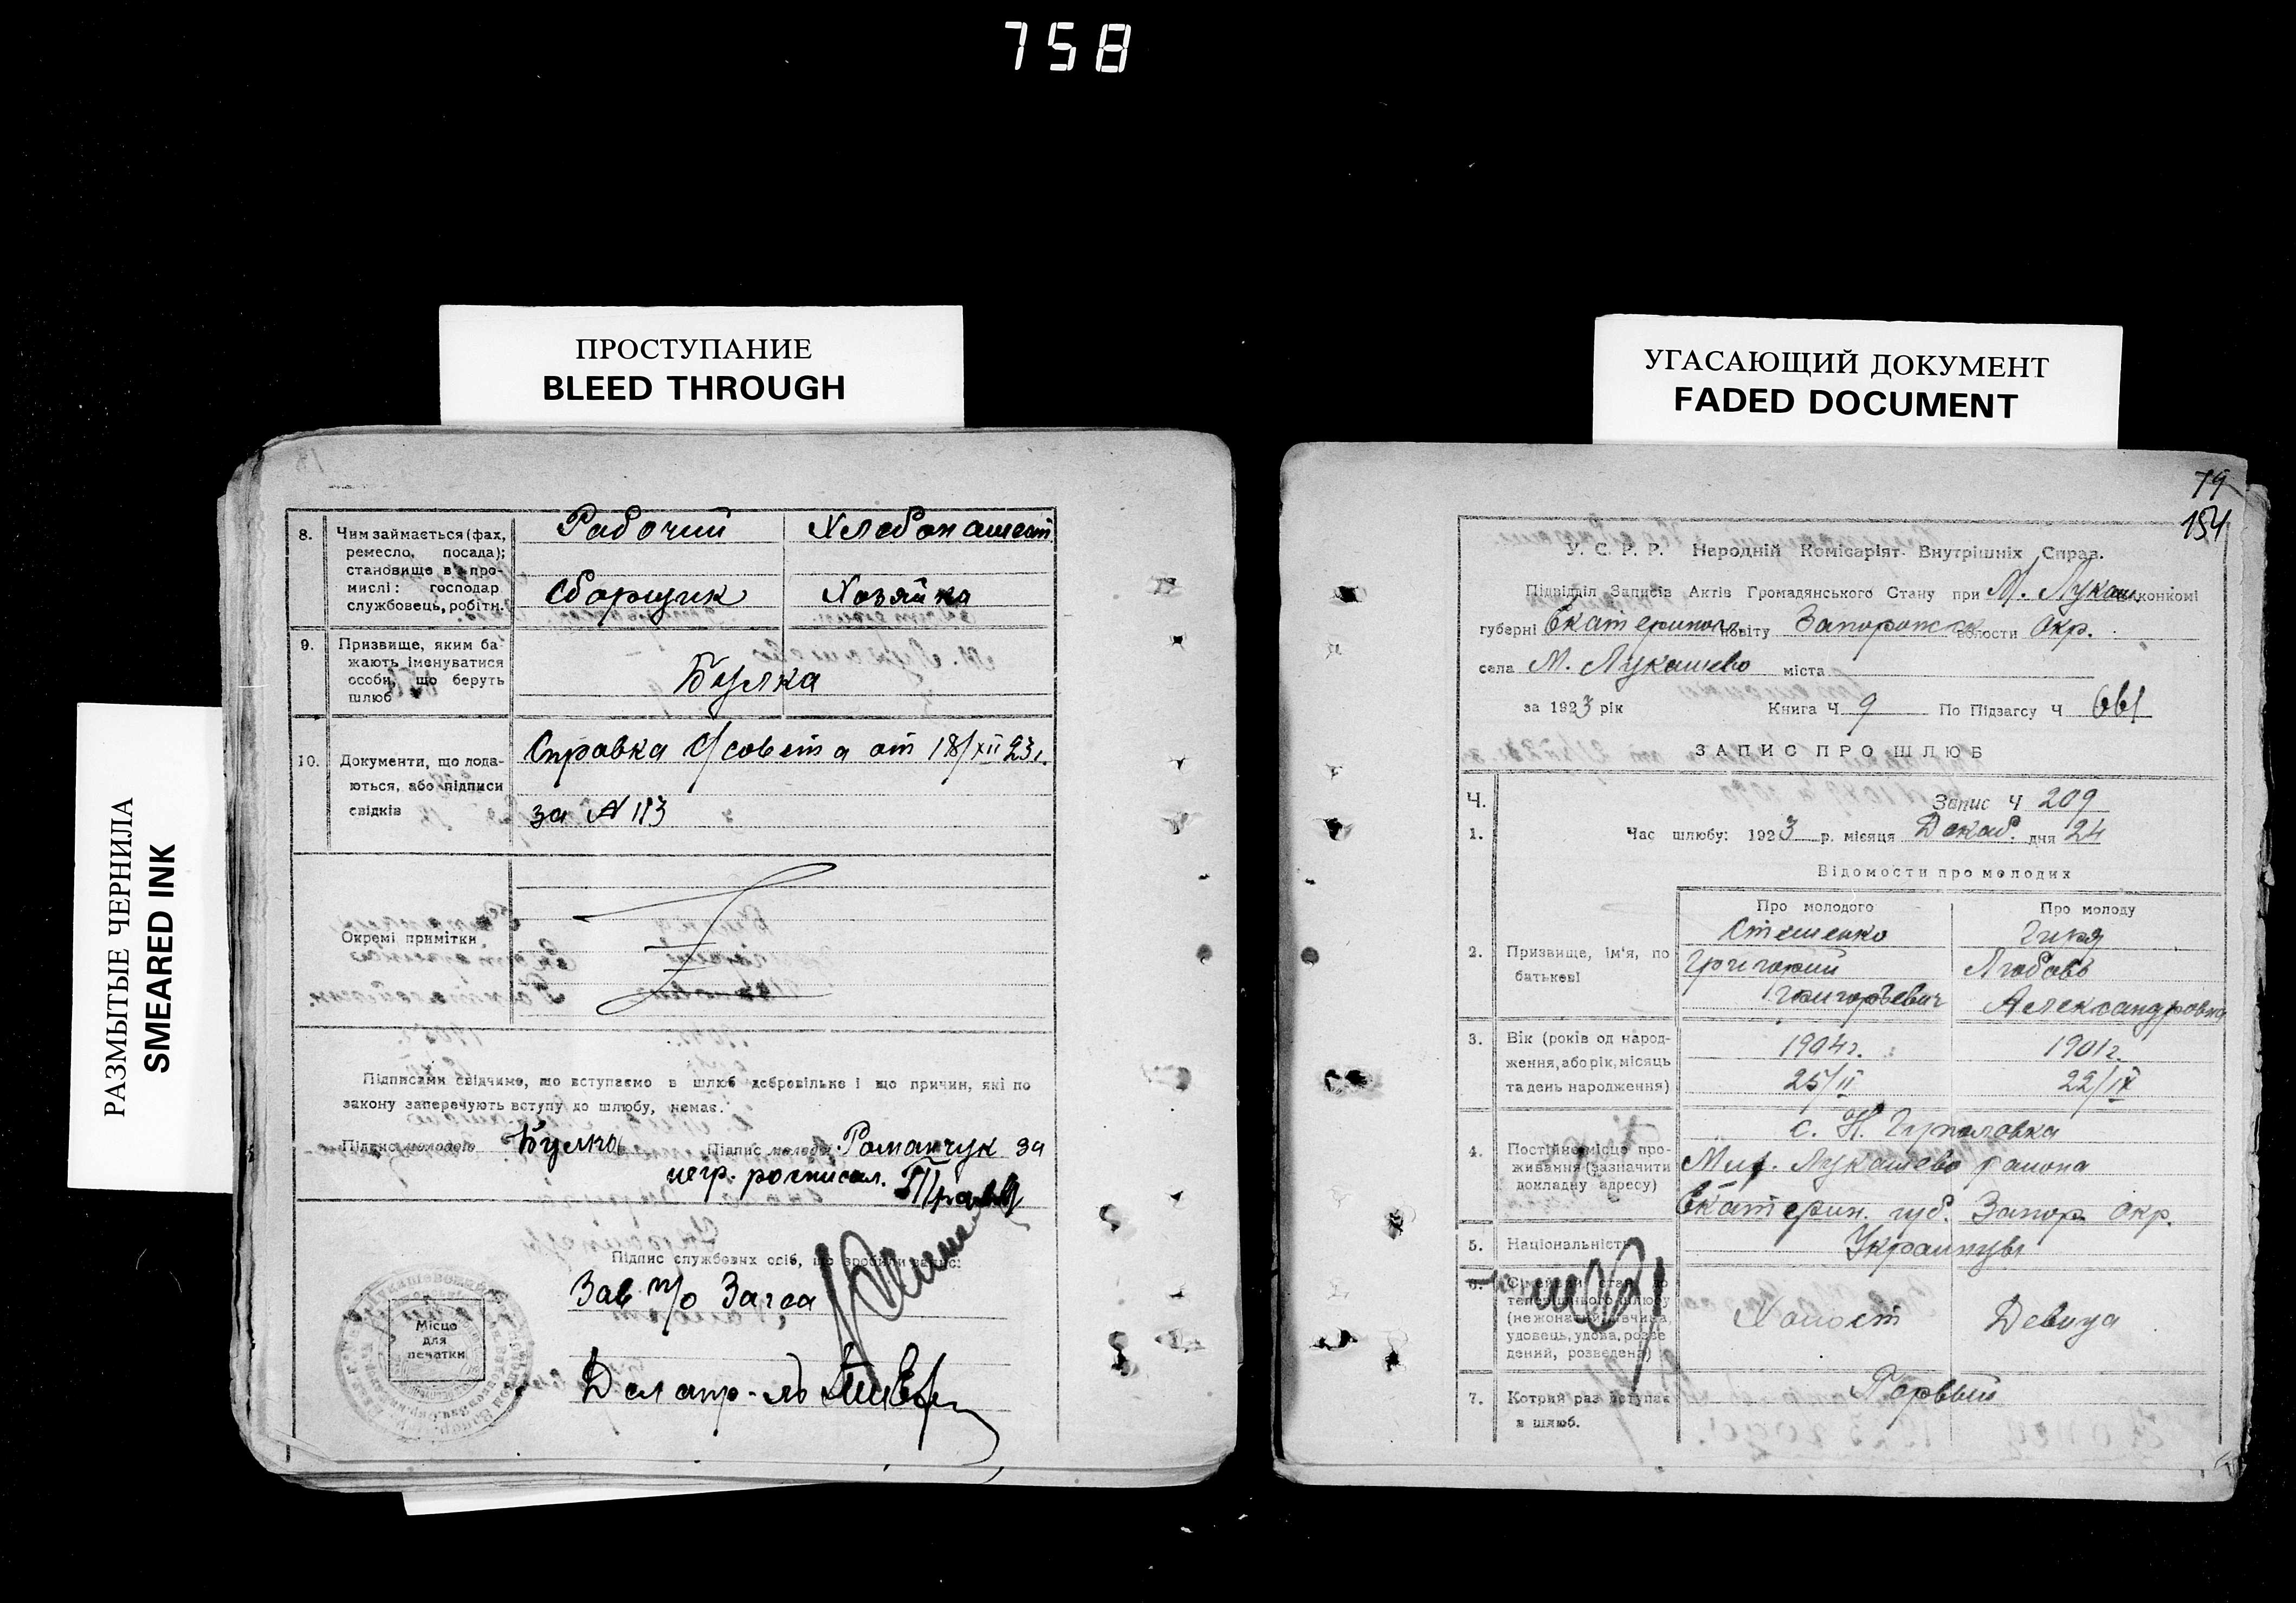 758
ПРОСТУПАНИЕ
BLEED THROUGH
УГАСАЮЩИЙ ДОКУМЕНТ
FADED DOCUMENT
РАЗМЫТЫЕ ЧЕРНИЛА
SMEARED INK
8. Чим займається (фах, ремесло, посада); становище в промислі: господар службовець, робітн.
Рабочий
Хлебопашест
Сборщик
Хозяйка
9. Призвище, яким бажають іменуватися особи, що беруть шлюб
Булка
10. Документи, що подаються, або підписи свідків
Справка С/совета от 18/XII 23г.
за N 113
Окремі примітки
Підписами свідчимо, що вступаємо в шлюб добровільно і що причин, які по
закону заперечують вступу до шлюбу, немає.
Підпис молодого Булка Підпис молодої Романчук за
негр. росписал.
Підпис службових осіб, що зробили запис:
Зав. п/о Загса
Делопр-ль
Місце
для
печатки
79
154
У. С. Р. Р. Народній Комісаріят Внутрішніх Справ.
Підвідділ Записів Актів Громадянського Стану при М. Лукаш. виконкомі
губерні Екатеринос. повіту Запорожск волости Окр.
села М. Лукашево міста
за 1923 рік Книга Ч 9 По Підзагсу Ч
ЗАПИС ПРО ШЛЮБ
Ч. Запис Ч 209
1. Час шлюбу: 1923 р. місяця Декаб. дня 24
Відомости про молодих
Про молодого
Про молоду
2. Призвище, ім'я, по батькові
Стешенко
Григорий
Григорьевич
Гиря
Любовь
Александровна
3. Вік (років од народження, або рік, місяць та день народження)
1904г.
1901г.
25/II
22/IX
4. Постійне місце проживання (зазначити докладну адресу)
с. Н. Гуполовка
Мих. Лукашево района
Екатерин. губ. Запор. Окр.
5. Національність
Украинцы
6. Сімейний стан до теперішнього шлюбу (неженатий, дівчина, удовець, удова, розведений, розведена)
Холост
Девица
7. Котрий раз вступає в шлюб.
Первый